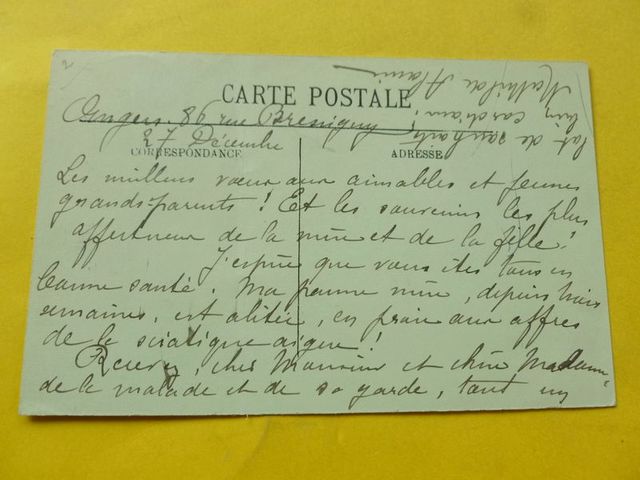 CARTE POSTALE
Angers. 86 rue Bressigny
27 Décembre
CORRESPONDANCE
ADRESSE
Les meilleurs vœux aux aimables et jeunes
grands-parents ! Et les souvenirs les plus
affectueux de la mère et de la fille !
J'espère que vous êtes tous en
bonne santé. Ma pauvre mère, depuis trois
semaines, est alitée, en proie aux affres
de la sciatique aigue !
Recevez, cher Monsieur et chère Madame
de la malade et de sa garde, tout un
lot de souhaits
bien cordiaux !
Mathilde Alanic